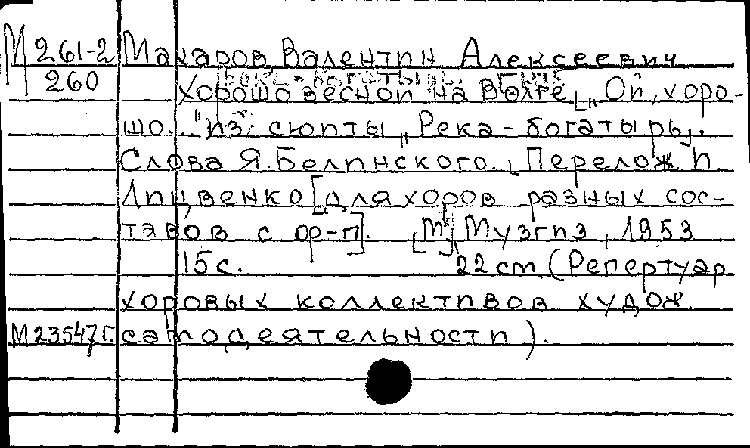 М 261-2 Макаров, Валентин Алексеевич
260
Хорошо весной на Волге, [„Ой, хоро-
шо..." из] сюиты „Река-богатырь".
Слова Я. Белинского. Перелож. И.
Лицвенко [для хоров разных сос-
тавов с ф-п]. [М] Музгиз, 1953
15с. 22 cm (Репертуар
хоровых коллективов худож.
М23547г. самодеятельности).